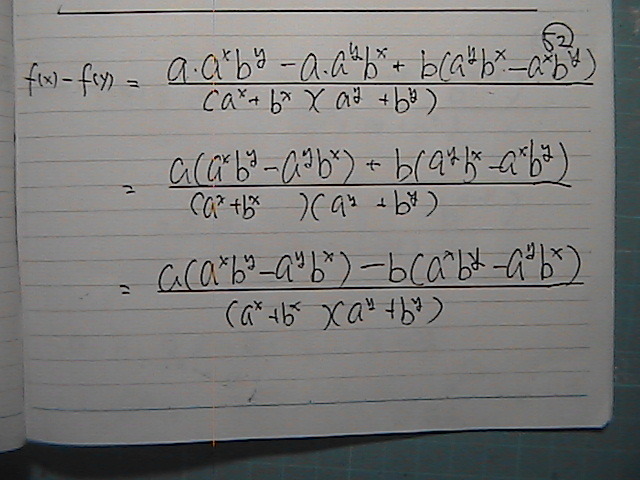 52
f(x) - f(y) = \frac{a \cdot a^x b^y - a \cdot a^y b^x + b(a^y b^x - a^x b^y)}{(a^x + b^x)(a^y + b^y)}
= \frac{a(a^x b^y - a^y b^x) + b(a^y b^x - a^x b^y)}{(a^x + b^x)(a^y + b^y)}
= \frac{a(a^x b^y - a^y b^x) - b(a^x b^y - a^y b^x)}{(a^x + b^x)(a^y + b^y)}